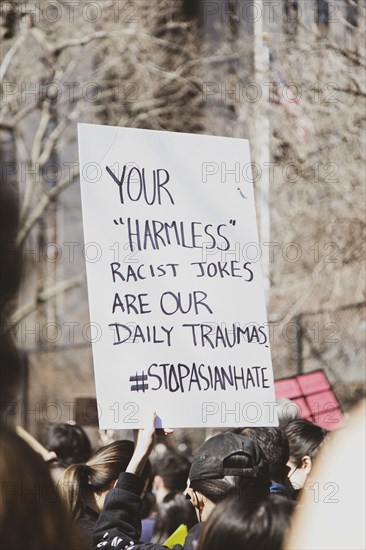 YOUR
"HARMLESS"
RACIST JOKES
ARE OUR
DAILY TRAUMAS.
#STOPASIANHATE